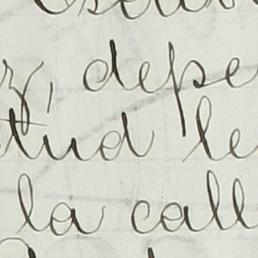 z, depe
tud le
la call